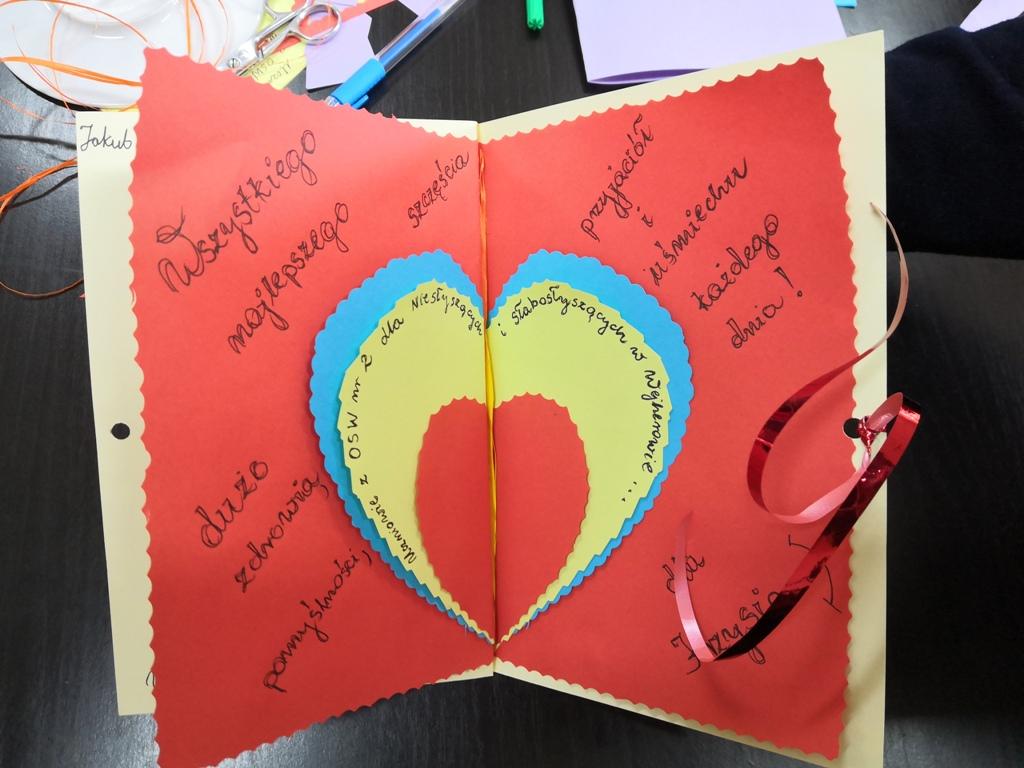 Jakub
Wszystkiego
najlepszego
szczęścia
dużo
zdrowia,
pomyślności,
przyjaciół
i
uśmiechu
każdego
dnia!
Uczniowie z OSW nr 2 dla Niesłyszących
i Słabosłyszących w Wejherowie...
dla